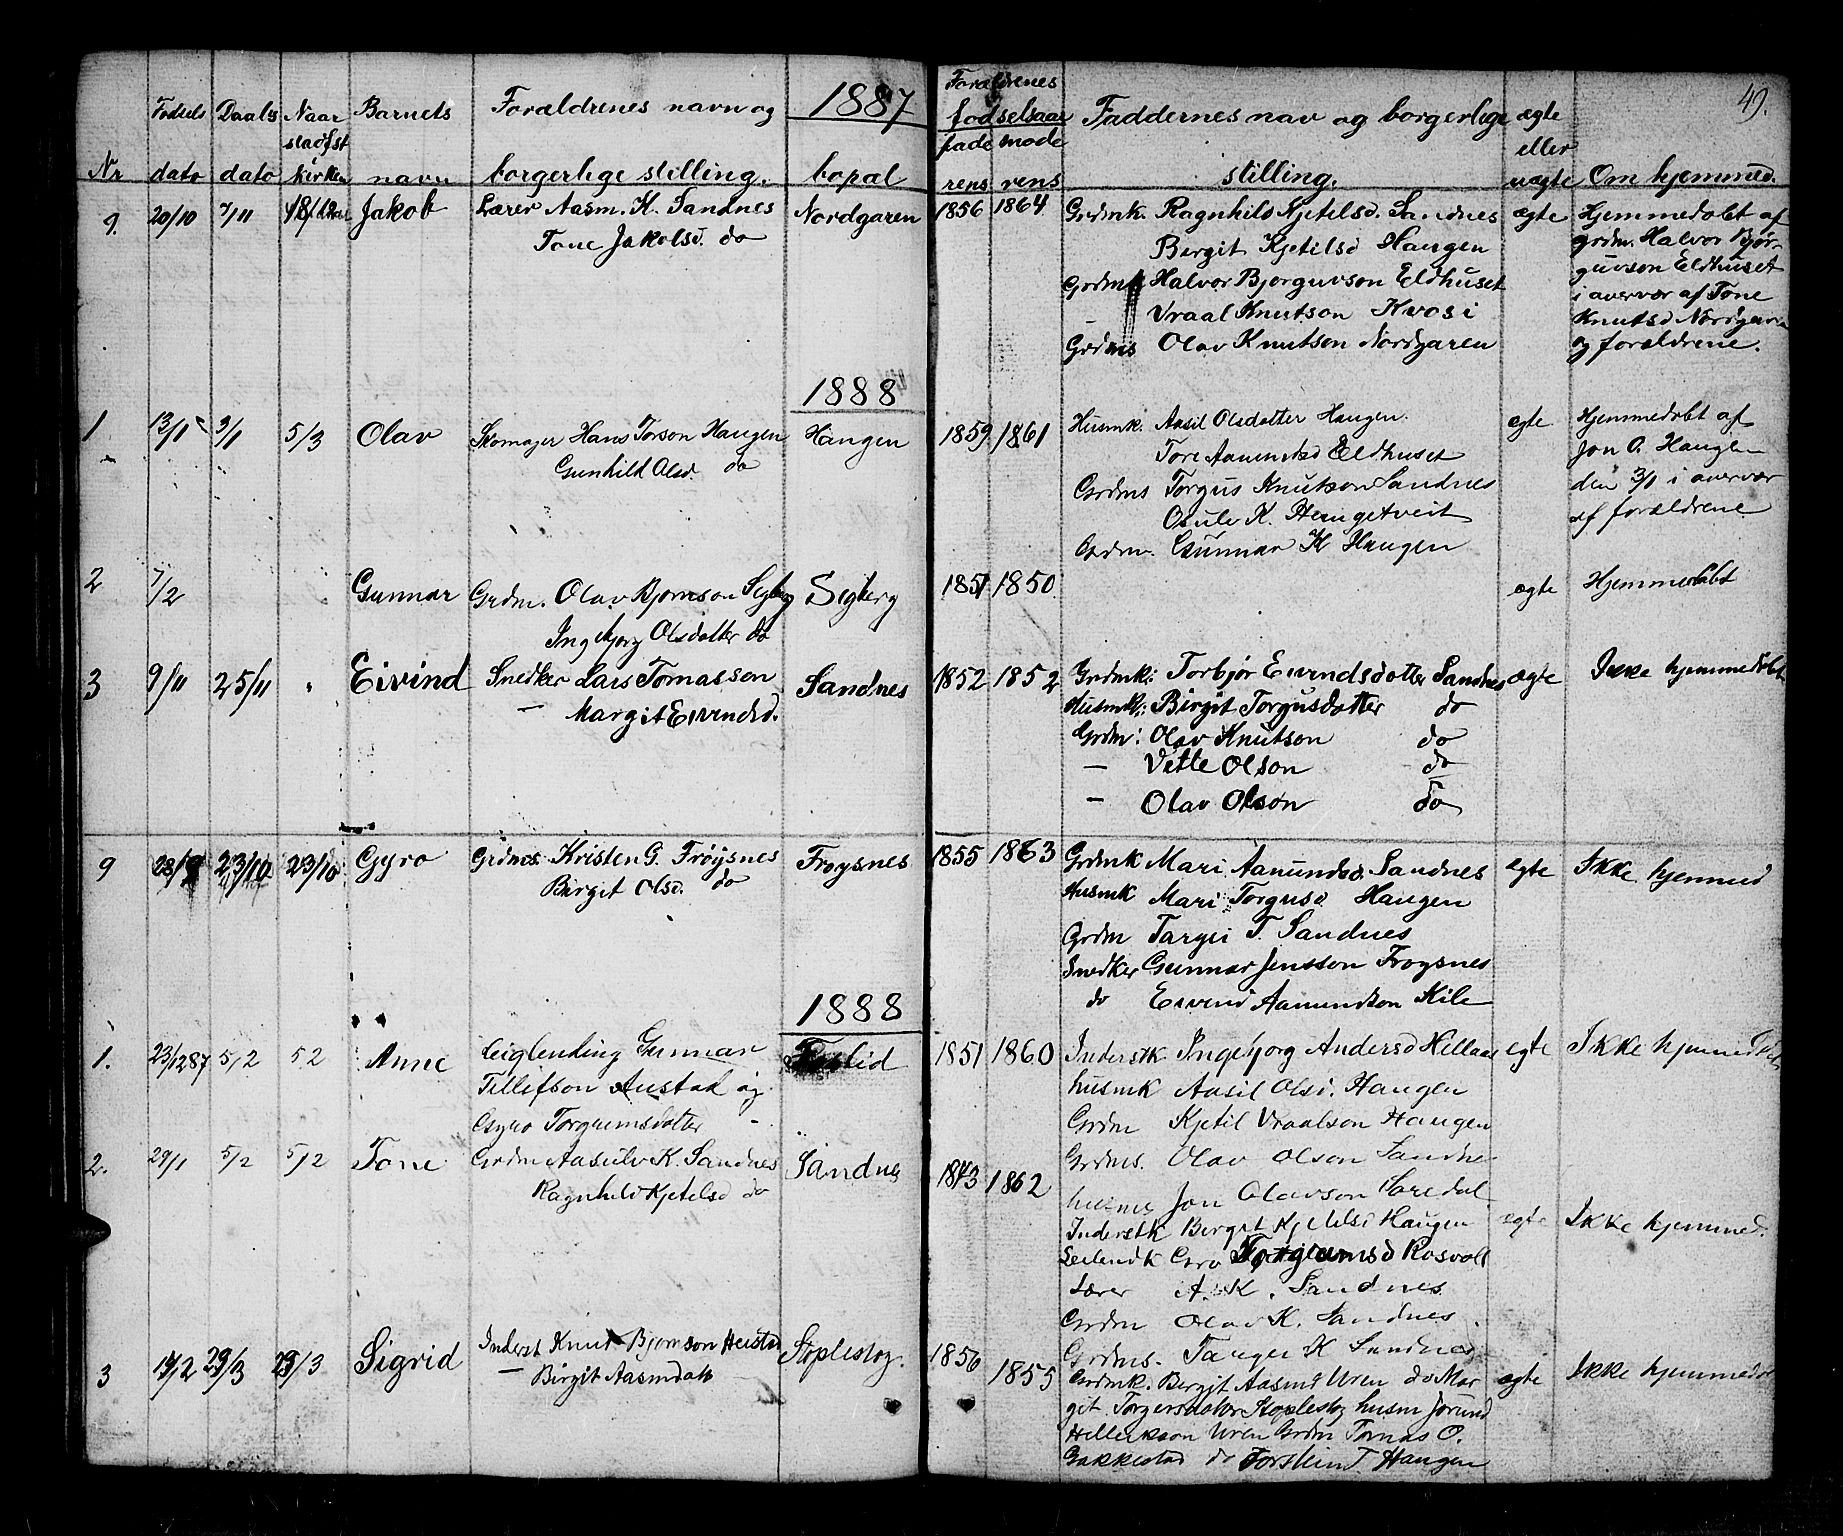 49.
Fodsels Daabs Naar Barnets Forældrenes navn og 1887
stadfst
Nr dato dato kirken navn borgerlige stilling. bopæl
Forældrenes
fodselsaar Faddernes nav og borgerlige ægte
fade mode eller
rens rens stilling. uægte Om hjemmed.
9. 20/10 7/11 Jakob Lærer Aasm. K. Sandnes Nordgaren
Tone Jakobsd. do
1856 1864 Grdmk. Ragnhild Kjetelsd. Sandnes ægte Hjemmedobt af
Bergit Kjetilsd Haugen grdm. Halvor Bjør-
Grdmk Halvor Bjorguvson Eldhuset guvson Eldhuset
— Vraal Knutson Kvosi i overvær af Tone
Knutsd Nordgaren
Grdms Olav Knutson Nordgaren og forældrene.
1888
1 13/1 3/1 5/3 Olav Skomager Hans Torson Haugen Haugen
Gunhild Olsd. do
1859 1861 Husmk. Aasil Olsdatter Haugen. egte Hjemmedobt af
Tore Aanundsd Eldhuset Jon O. Haugen
Grdms Torgus Knutson Sandnes den 3/1 i overvær
Osulv K. Heugetveit af forældrene
Grdm. Gunnar K Haugen
2 7/2 Gunnar Grdm. Olav Bjornson Sigberg Sigberg
Ingebjorg Olsdatter do
1851 1850 ægte Hjemmedobt
3 9/11 25/11 " Eivind Snedker Lars Tomasson Sandnes
— Margit Eivindsd.
1852 1852 Grdmk: Torbjør Eivindsdotter Sandnes ægte Ikke hjemmedobt
Husmk: Birgit Torgusdotter do
Grdm: Olav Knutson do
— Vetle Olson do
— Olav Olson do
9 28/9 23/10 23/10 Gyro Grdms. Kristen G. Frøysnes Froysnes
Birgit Olsd. do
1855 1863 Grdmk Mari Aanundsd. Sandnes egte Ikke hjemmed
Husmk Mari Torgusd Haugen
Grdm Targei T. Sandnes
Snedker Gunnar Jensson Froysnes
do Eivind Aanundson Kile
1888
1. 23/12 87 5/2 5 2 Anne Leiglending Gunnar
Tillifson Austad og
Gyro Torgrumsdotter —
1851 1860 Inderstk Ingebjorg Andersd Hellaas egte Ikke hjemmed
husmk Aasil Olsd. Haugen
Grdm Kjetil Vraalson Haugen
Grdms. Olav Olson Sandne
Jon Olavson
2. 29/1 5/2 5/2 Tone Grdm Aasulv K. Sandnes Sandnes
Ragnhild Kjetelsd do
1843 1862 Inderstk Bergit Kjetilsd Haugen egte Ikke hjemmed.
Leilendk Gyro Torgrumsd Rosvoll
Lærer A. K. Sandnes
Grdm Olav K. Sandnes
Grdms. Targei K Sandnes
3 14/2 25/3 25/3 Sigrid Inderst Knut Bjornson Heistad Stoplestog.
— Birgit Aasmdatt —
1856 1855 Grdmk. Bergit Aasmd Uren do Mar egte Ikke hjemmedo
git Torgersdatter Stoplestog husm Jorund
Hellerkson Uren Grdm Tomas O.
Gakkestad do Torstein T Haugen